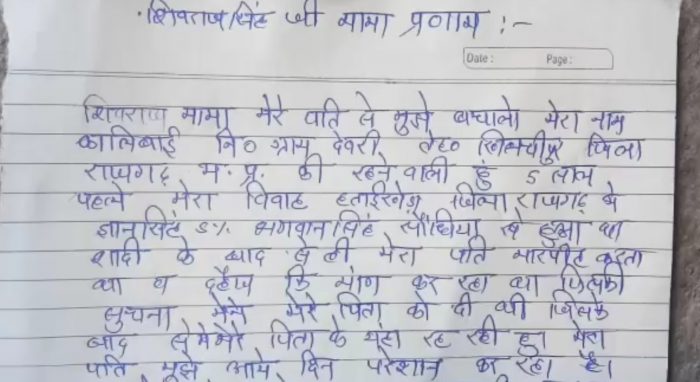 शिवराज सिंह जी मामा प्रणाम :-
Date : Page :
शिवराज मामा मेरे पति से मुझे बच्चालो मेरा नाम
कालिबाई नि० ग्राम देवरी तह० खिलचीपुर जिला
राजगढ़ म. प्र. की रहने वाली हुं 5 साल
पहले मेरा विवाह जिला राजगढ़ के
ज्ञानसिंह S/० भगवानसिंह सौंधिया से हुआ था
शादी के बाद से ही मेरा पति मारपीट करता
था व दहेज कि मांग कर रहा था जिसकी
सुचना मेने मेरे पिता को दी थी जिसके
बाद से मे मेरे पिता के यहा रह रही हु। मेरा
पति मुझे आये दिन परेशान कर रहा है।